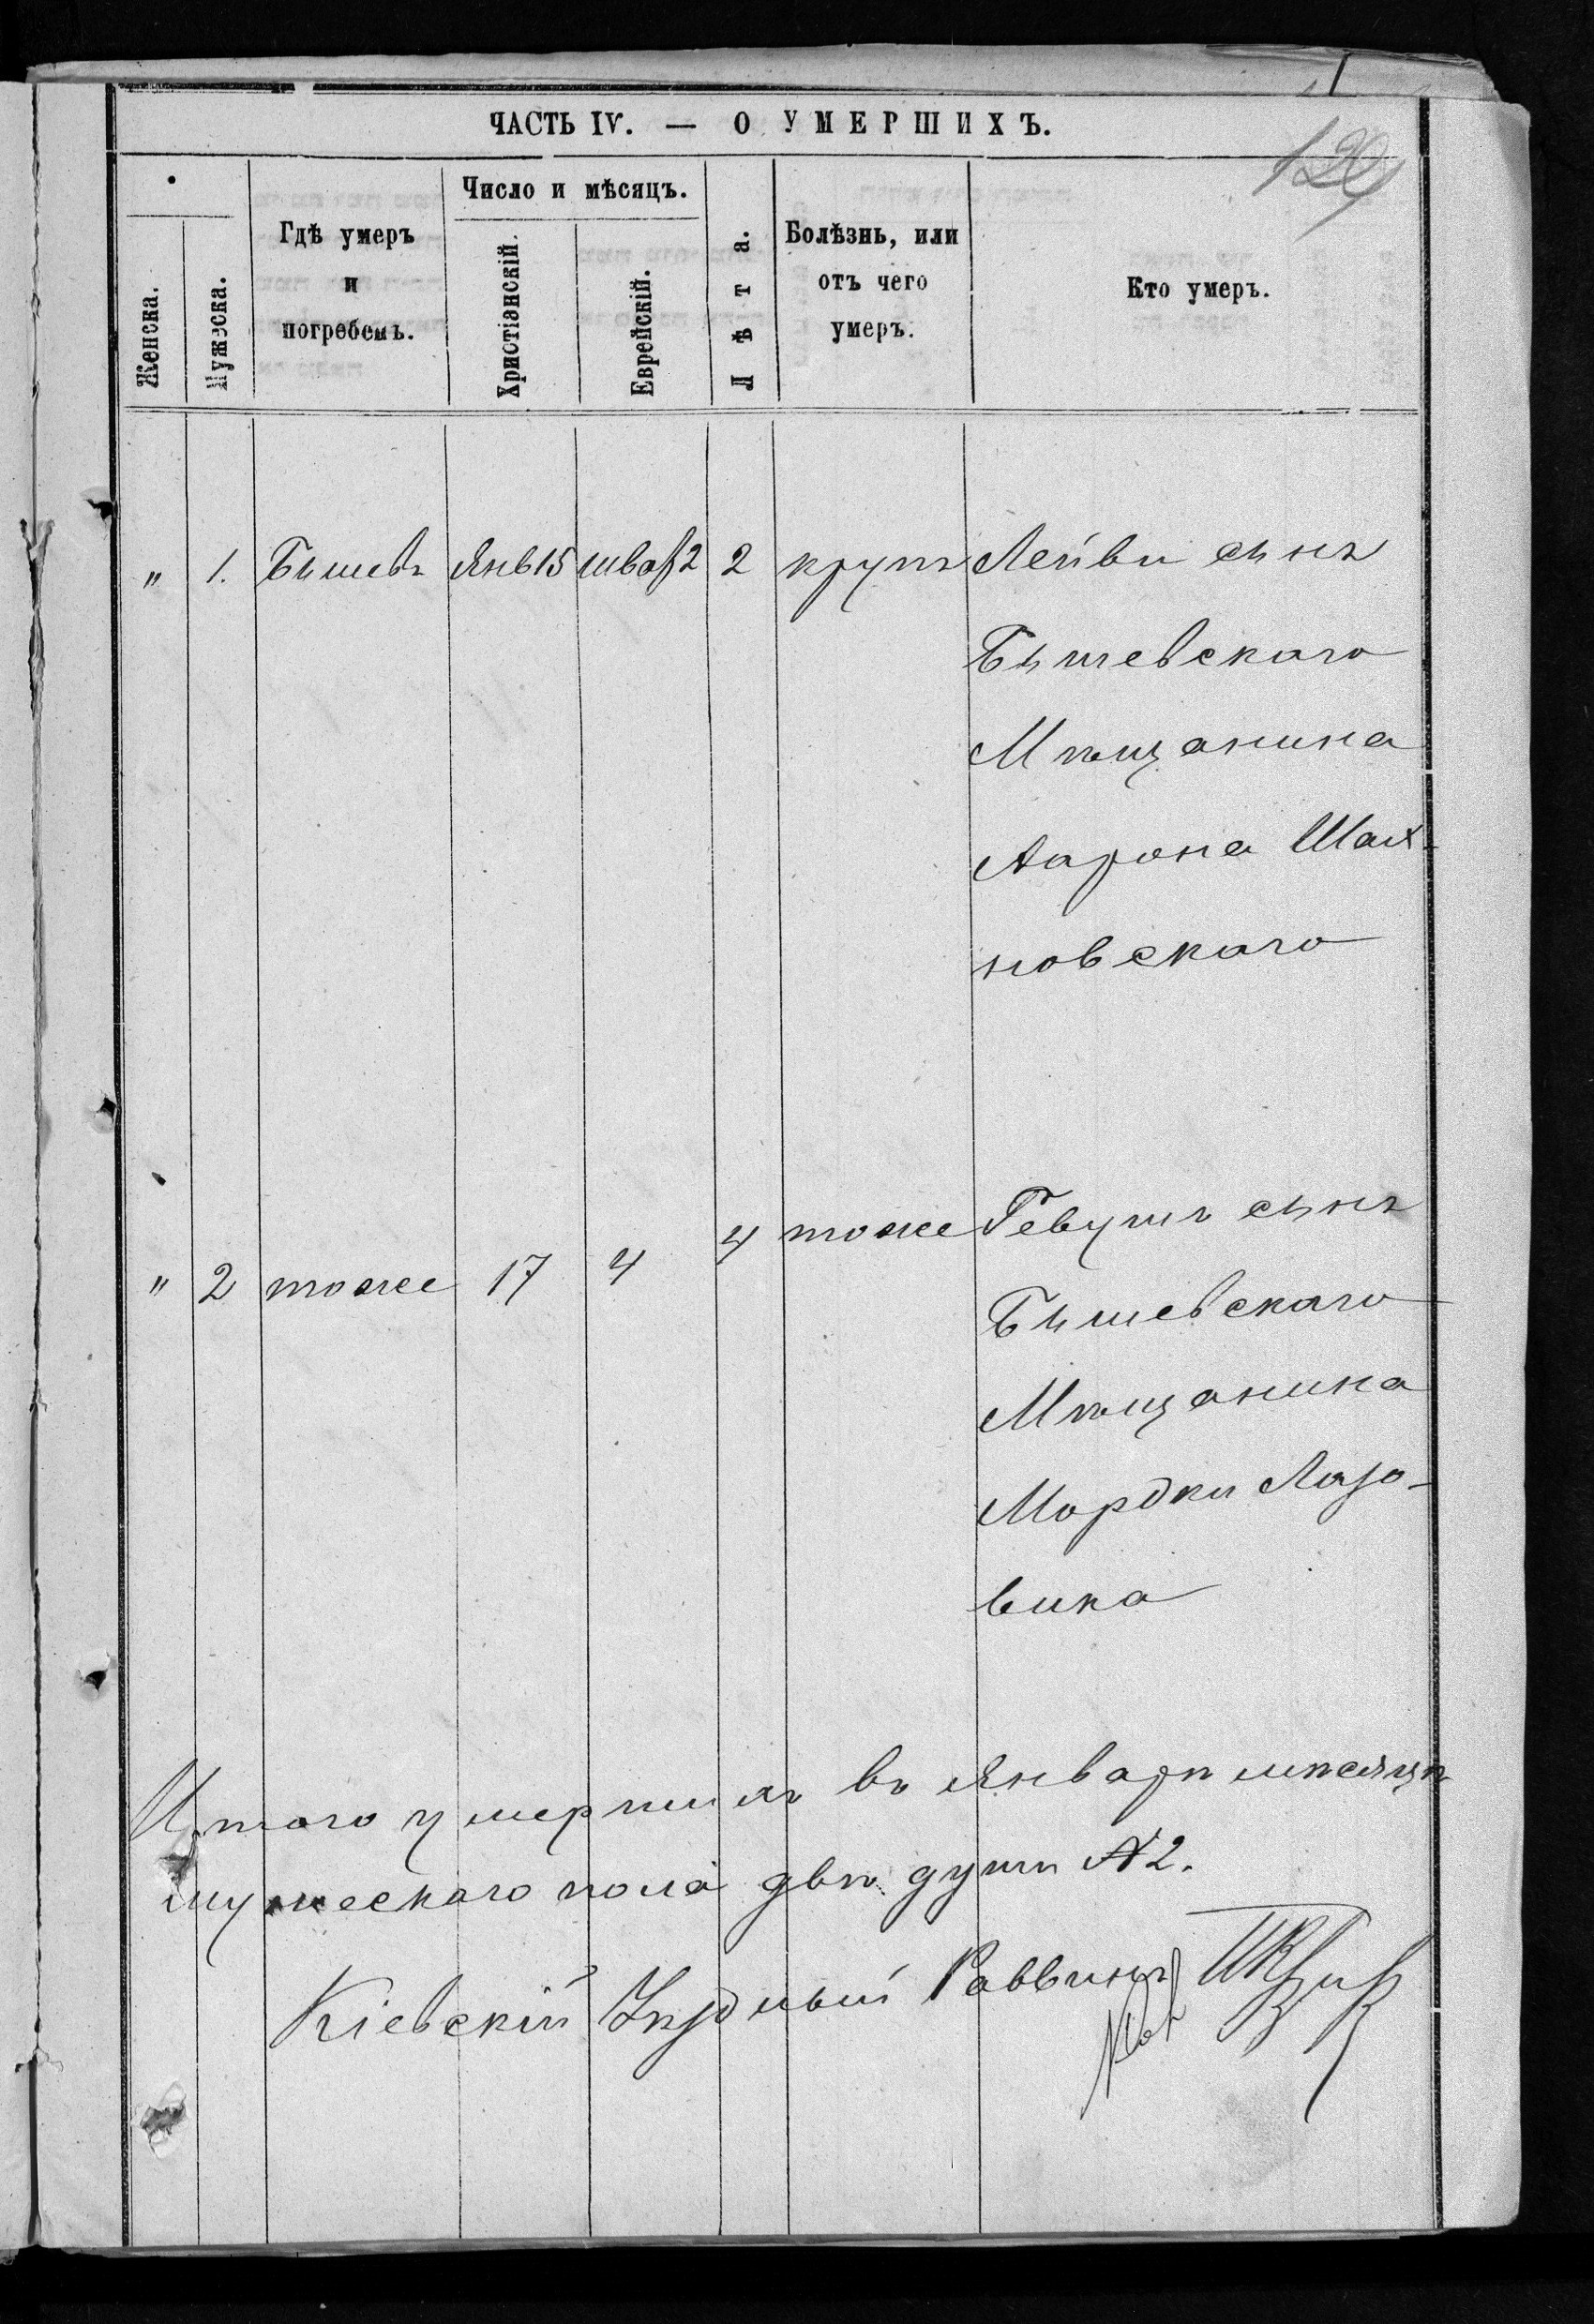 ЧАСТЬ IV. — О УМЕРШИХЪ.
129
Женска.
Мужеска.
Гдѣ умеръ
и
погребенъ.
Число и мѣсяцъ.
Христіанскій.
Еврейскій.
Лѣта.
Болѣзнь, или
отъ чего
умеръ.
Кто умеръ.
" 1. Бышевъ Янв 15 шват 2 2 крупъ Лейви сынъ
Бышевскаго
Мѣщанина
Аарона Шах-
новскаго
" 2 тоже 17 4 4 тоже Гевушъ сынъ
Бышевскаго
Мѣщанина
Мордки Лазо-
вика
Итого умершихъ въ Январѣ мѣсяцѣ
мужескаго пола двѣ души № 2.
Кіевскій Уѣздный Раввинъ